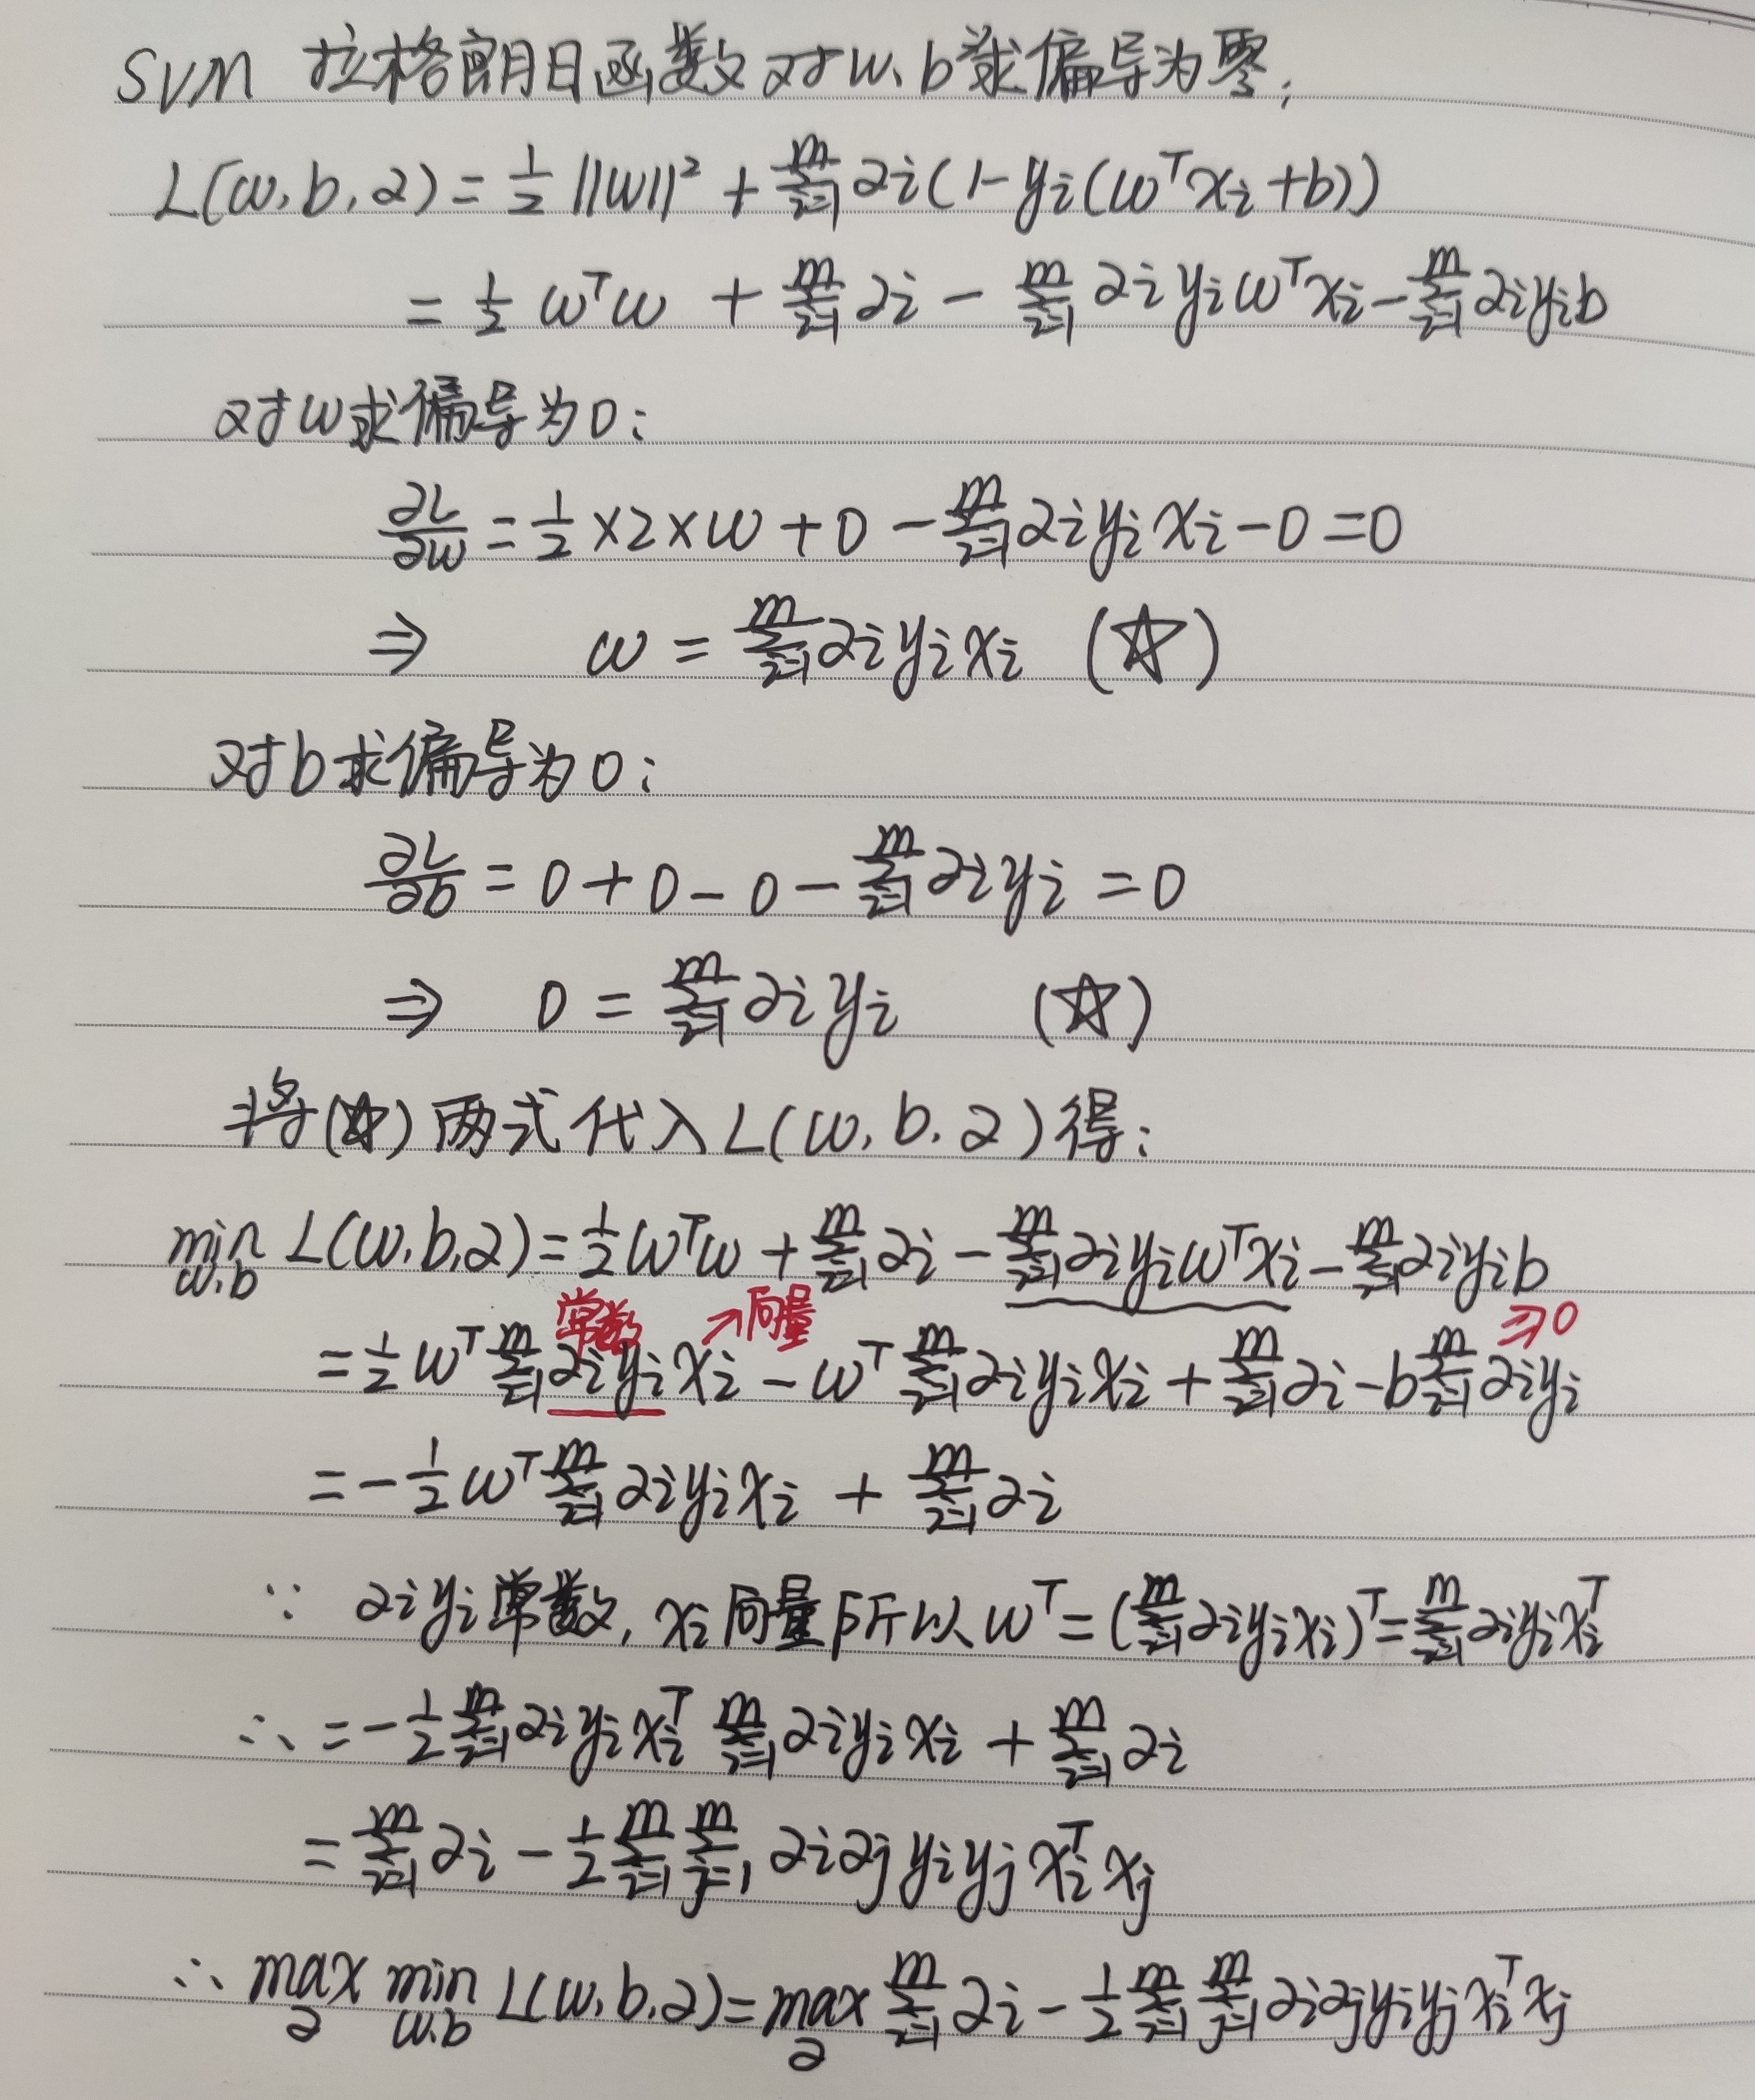 SVM 拉格朗日函数对w、b求偏导为零;
L(w,b,α)=½||w||²+∑ᵢ₌₁ᵐ αᵢ(1-yᵢ(wᵀxᵢ+b))
=½wᵀw+∑ᵢ₌₁ᵐ αᵢ-∑ᵢ₌₁ᵐ αᵢyᵢwᵀxᵢ-∑ᵢ₌₁ᵐ αᵢyᵢb
对w求偏导为0:
∂L/∂w=½×2×w+0-∑ᵢ₌₁ᵐ αᵢyᵢxᵢ-0=0
⇒ w=∑ᵢ₌₁ᵐ αᵢyᵢxᵢ (☆)
对b求偏导为0:
∂L/∂b=0+0-0-∑ᵢ₌₁ᵐ αᵢyᵢ=0
⇒ 0=∑ᵢ₌₁ᵐ αᵢyᵢ (☆)
将(☆)两式代入L(w,b,α)得:
min w,b L(w,b,α)=½wᵀw+∑ᵢ₌₁ᵐ αᵢ-∑ᵢ₌₁ᵐ αᵢyᵢwᵀxᵢ-∑ᵢ₌₁ᵐ αᵢyᵢb
常数 ↗向量 ⇒0
=½wᵀ∑ᵢ₌₁ᵐ αᵢyᵢxᵢ-wᵀ∑ᵢ₌₁ᵐ αᵢyᵢxᵢ+∑ᵢ₌₁ᵐ αᵢ-b∑ᵢ₌₁ᵐ αᵢyᵢ
=-½wᵀ∑ᵢ₌₁ᵐ αᵢyᵢxᵢ+∑ᵢ₌₁ᵐ αᵢ
∵ αᵢyᵢ常数,xᵢ向量所以wᵀ=(∑ᵢ₌₁ᵐ αᵢyᵢxᵢ)ᵀ=∑ᵢ₌₁ᵐ αᵢyᵢxᵢᵀ
∴ =-½∑ᵢ₌₁ᵐ αᵢyᵢxᵢᵀ∑ᵢ₌₁ᵐ αᵢyᵢxᵢ+∑ᵢ₌₁ᵐ αᵢ
=∑ᵢ₌₁ᵐ αᵢ-½∑ᵢ₌₁ᵐ∑ⱼ₌₁ᵐ αᵢαⱼyᵢyⱼxᵢᵀxⱼ
∴ max α min w,b L(w,b,α)=max α ∑ᵢ₌₁ᵐ αᵢ-½∑ᵢ₌₁ᵐ∑ⱼ₌₁ᵐ αᵢαⱼyᵢyⱼxᵢᵀxⱼ